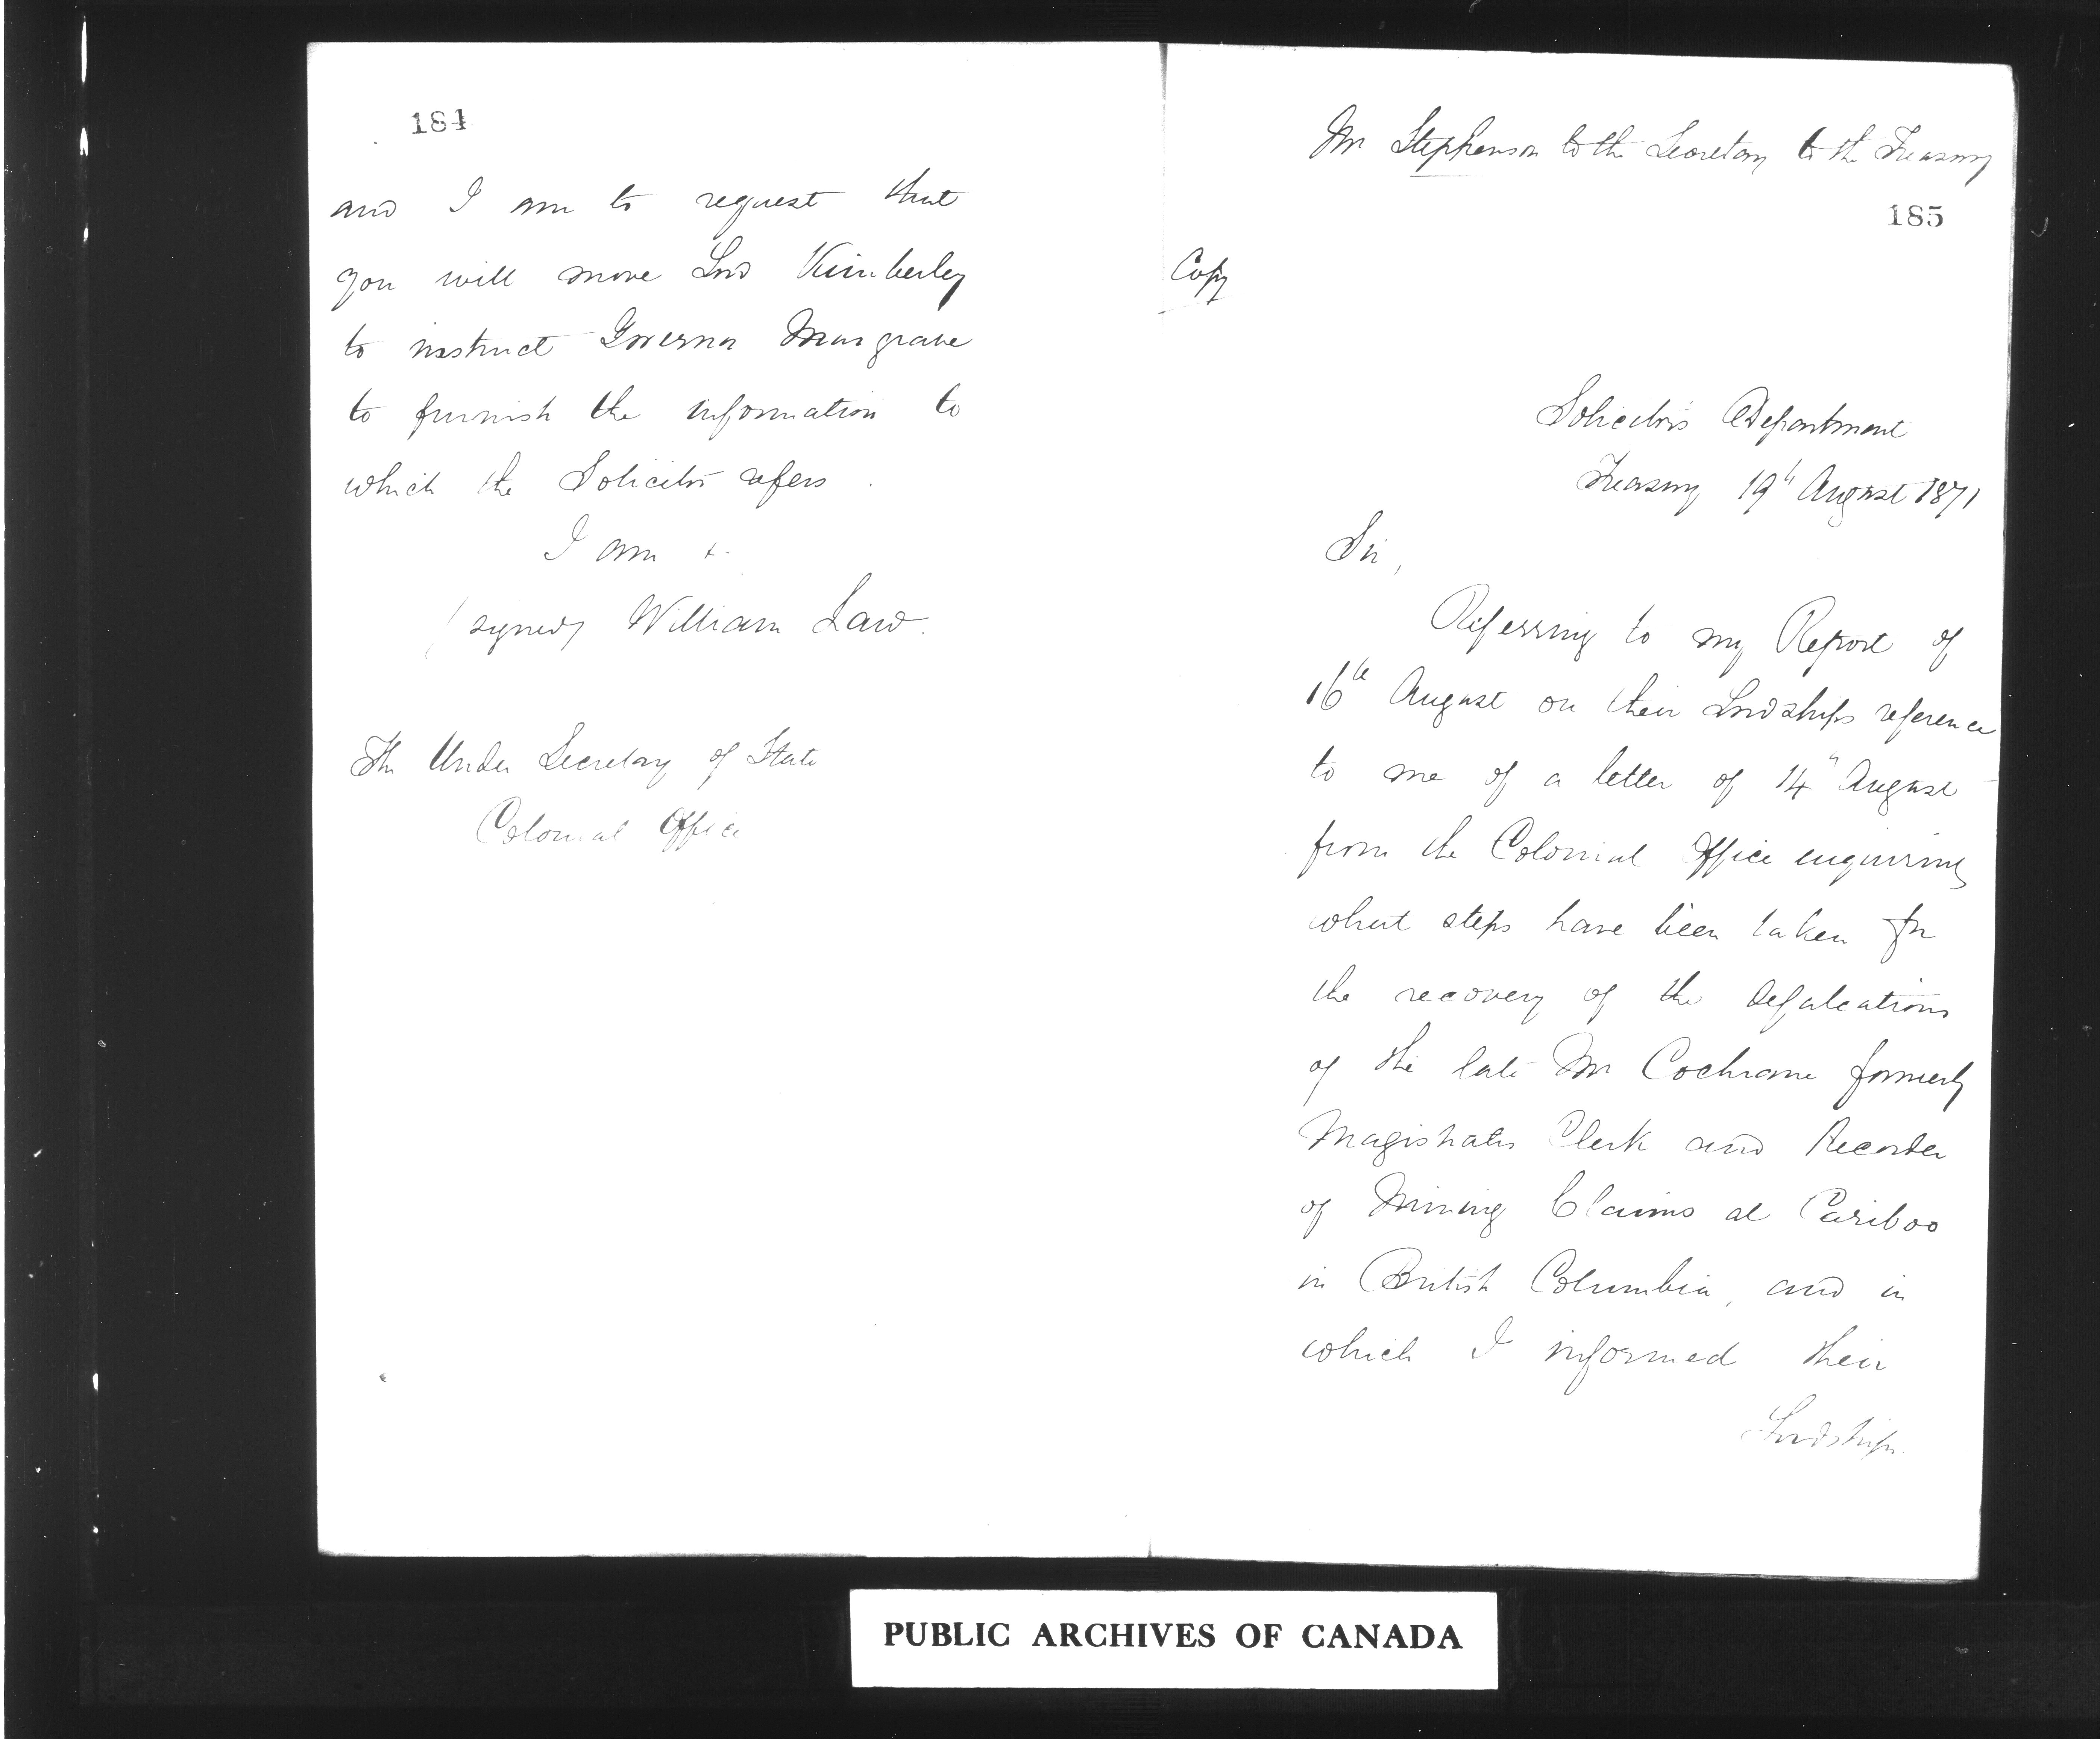 184
and I am to request that
you will move Lord Kimberley
to instruct Governor Musgrave
to furnish the information to
which the Solicitor refers.
I am &.
(signed) William Law.
The Under Secretary of State
Colonial Office
Mr Stephenson to the Secretary to the Treasury
185
Copy
Solicitor's Department
Treasury 19th August 1871
Sir,
Referring to my Report of
16th August on their Lordships reference
to me of a letter of 14" August
from the Colonial Office enquiring
what steps have been taken for
the recovery of the defalcations
of the late Mr Cochrane formerly
Magistrates Clerk and Recorder
of Mining Claims at Cariboo
in British Columbia, and in
which I informed their
Lordships
PUBLIC ARCHIVES OF CANADA